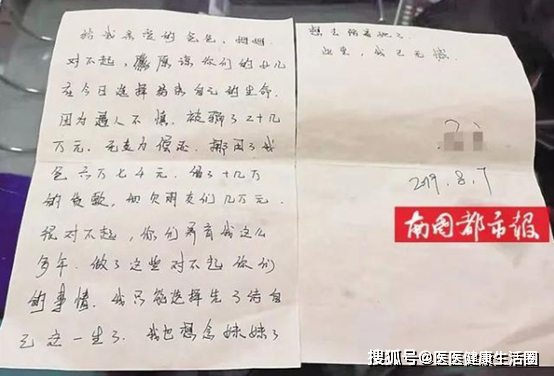 给我亲爱的爸爸，妈妈
对不起，原谅你们的女儿
在今日选择结束自己的生命
因为遇人不慎。被骗了二十几
万元。无力偿还。挪用了我
爸六万七千元。借了十几万
的贷款，和欠朋友们几万元。
很对不起，你们养育我这么
多年。做了这些对不起你们
的事情。我只能选择先了结自
己这一生了。我也想念妹妹了
想去陪着她了。
此生，我已无憾。
2019.8.7
南国都市报
搜狐号@医医健康生活圈